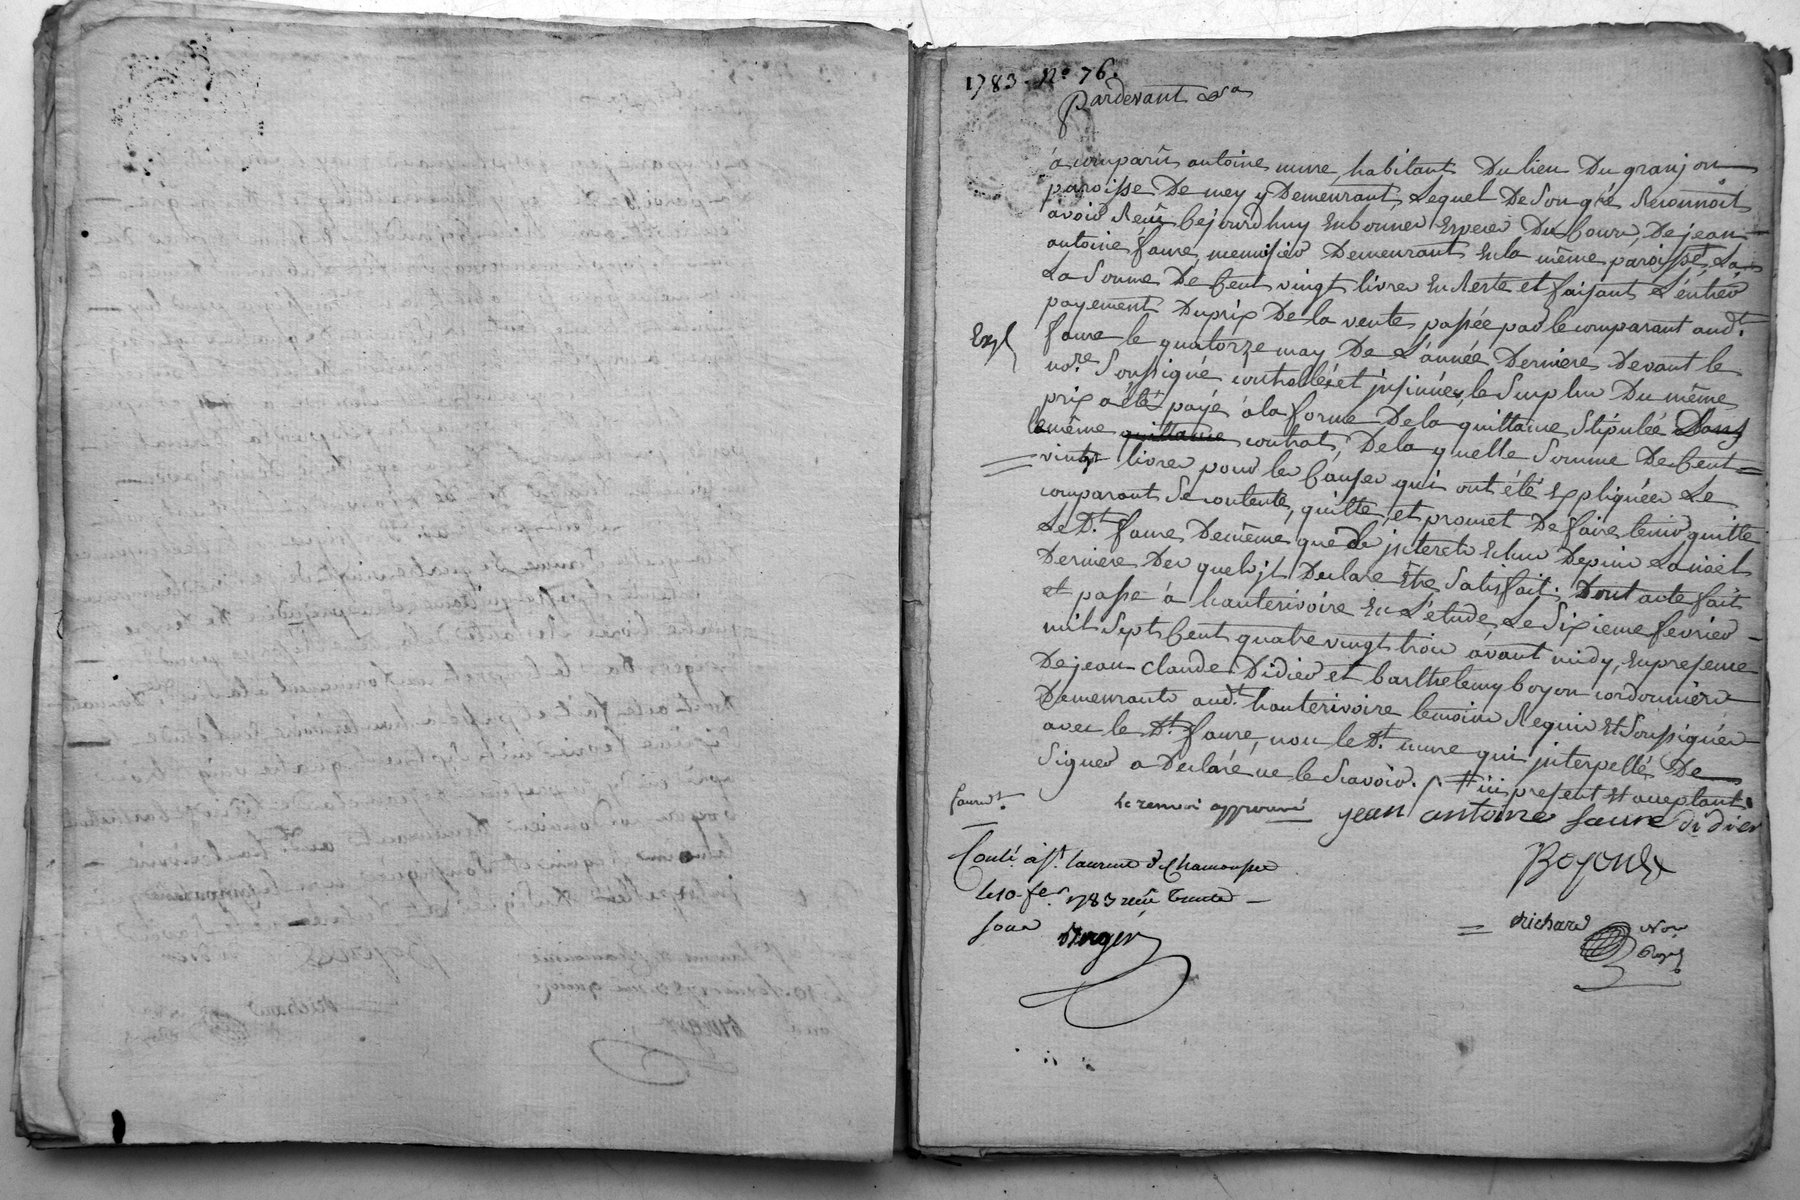 1783. N.o 76.
Pardevant &a
à comparû antoine mure habitant Du lieu Du granjon
paroisse De meys y Demeurant, Lequel De Son gré Reconnoit
avoir Reçû Cejourdhuy En bonnes Especes Du Cours, De jean
antoine faure, menuisier Demeurant En la même paroisse, #
La Somme De Cent vingt livres En Reste et faisant L'entier
payement Du prix De la vente passée par le comparant aud.t
Exp.
faure le quatorze may De L'année Derniere Devant le
no.re Soussigné controllée et jnsinuée, le Surplus Du même
prix a été payé à la forme De la quittance Stipulée Dans
le même quittance contrat, De la quelle Somme De Cent
vingt livres pour les Causes qui ont été Expliquées Le
comparant Se contente, quitte, et promet De faire tenir quitte
Le D.t faure De même que De jnterets Echus Depuis La noël
Derniere Des quels jl Declare Être Satisfait. Dont acte fait
et passé à hauterivoire En L'etude, Le Sixieme fevrier
mil Sept Cent quatre vingt trois avant midy, En presence
De jean claude Didier et barthelemy boyon cordonniers
Demeurants aud.t hauterivoire temoins Requis Et Soussignés
avec le D.t faure, non le D.t mure qui jnterpellé De
Signer a Declaré ne le Scavoir. # ici present Et acceptant
le renvoi approuvé jean antoine faure didier
Conté. à S.t laurent de Chamousset
le 10 fe.r 1783 reçû trente
sous
Boyon
Richard No.re
Royal